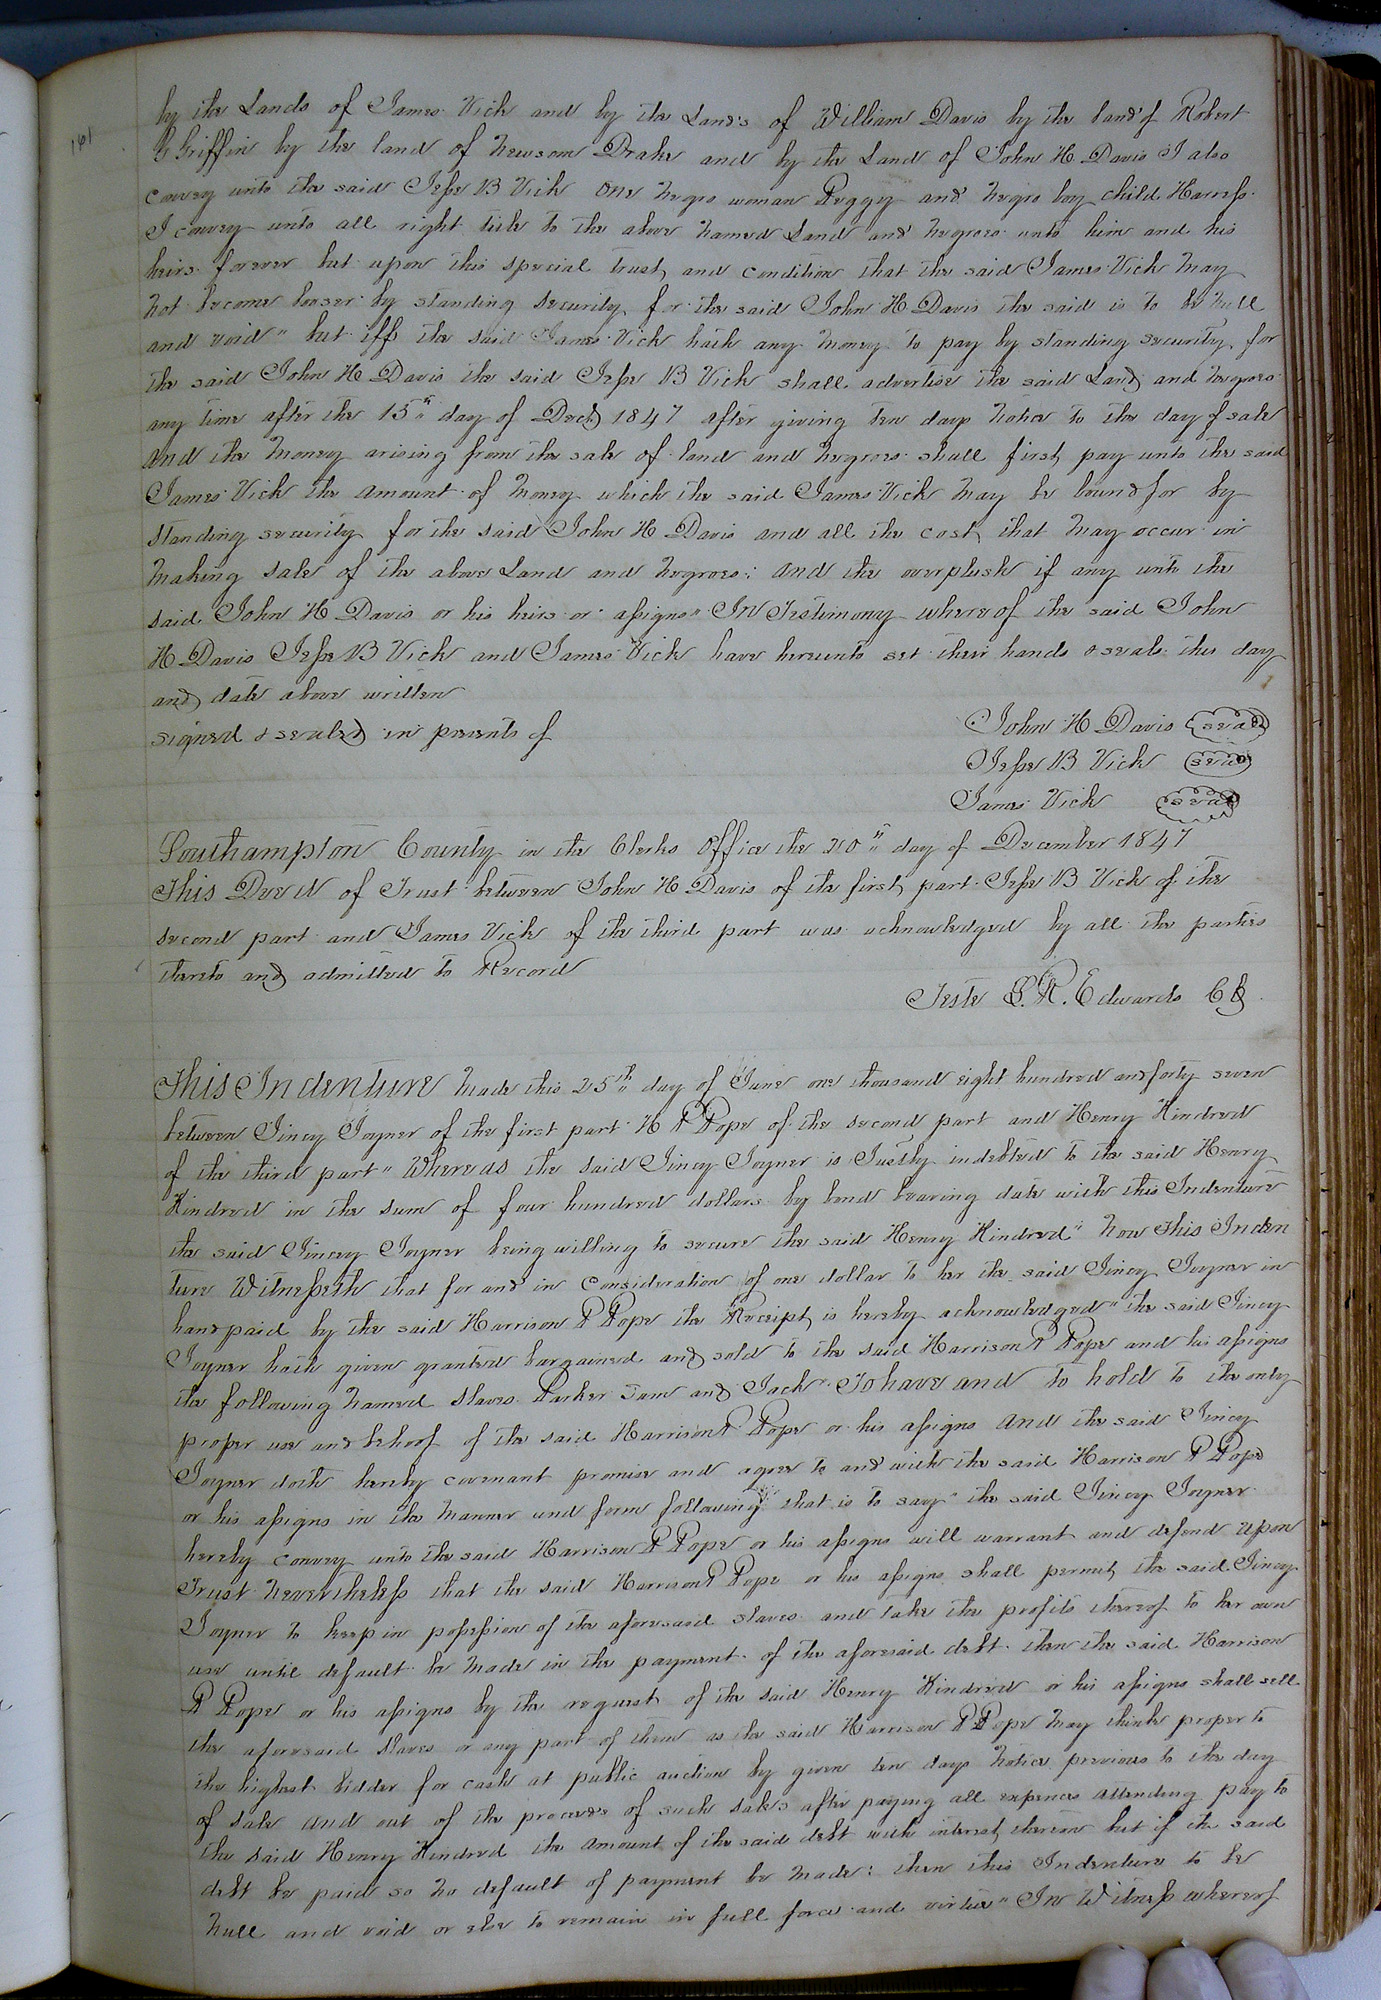 161
by the Lands of James Vick and by the Lands of William Davis by the land of Robert
G Griffin by the land of Newsom Drake and by the Land of John H Davis I also
convey unto the said Jesse B Vick one negro woman Peggy and negro boy child Harress.
I convey unto all right title to the above named Land and negroes unto him and his
heirs forever but upon this special trust and condition that the said James Vick may
not become looser by standing security for the said John H Davis the said is to be null
and void" but iff the said James Vick hath any money to pay by standing security for
the said John H Davis the said Jesse B Vick shall advertise the said Land and negroes
any time after the 15th day of Decr 1847 after giving ten days notice to the day of sale
and the money arising from the sale of land and negroes shall first pay unto the said
James Vick the amount of money which the said James Vick may be bound for by
standing security for the said John H Davis and all the cost that may occur in
making sale of the above Land and negroes: and the overplush if any unto the
said John H Davis or his heirs or assigns" In Testimony whereof the said John
H Davis Jesse B Vick and James Vick have hereunto set their hands & seals this day
and date above written
signed & sealed in presents of
John H Davis (seal)
Jesse B Vick (seal)
James Vick (seal)
Southampton County in the Clerks Office the 20th day of December 1847
This Deed of Trust between John H Davis of the first part Jesse B Vick of the
second part and James Vick of the third part was acknowledged by all the parties
thereto and admitted to Record
Teste L. R. Edwards Ck
This Indenture made this 25th day of June one thousand eight hundred and forty seven
between Jincy Joyner of the first part H P Pope of the second part and Henry Kindred
of the third part" Whereas the said Jincy Joyner is Justly indebted to the said Henry
Kindred in the sum of four hundred dollars by bond bearing date with this Indenture
the said Jincey Joyner being willing to secure the said Henry Kindred" Now this Inden
ture Witnesseth that for and in consideration of one dollar to her the said Jincy Joyner in
hand paid by the said Harrison P Pope the Receipt is hereby acknowledged" the said Jincy
Joyner hath given granted bargained and sold to the said Harrison P Pope and his assigns
the following named slaves Parker Sam and Jack" To have and to hold to the only
proper use and behoof of the said Harrison P Pope or his assigns and the said Jincy
Joyner doth hereby covenant promise and agree to and with the said Harrison P Pope
or his assigns in the manner and form following that is to say" the said Jincy Joyner
hereby convey unto the said Harrison P Pope or his assigns will warrant and defend upon
Trust nevertheless that the said Harrison P Pope or his assigns shall permit the said Jincy
Joyner to keep in possession of the aforesaid slaves and take the profits thereof to her own
use until default be made in the payment of the aforesaid debt then the said Harrison
P Pope or his assigns by the request of the said Henry Kindred or his assigns shall sell
the aforesaid slaves or any part of them as the said Harrison P Pope may think proper to
the highest bidder for cash at public auction by given ten days notice previous to the day
of sale and out of the proceeds of such sales after paying all expences attending pay to
the said Henry Kindred the amount of the said debt with interest thereon but if the said
debt be paid so no default of payment be made: then this Indenture to be
null and void or else to remain in full force and virtue" In Witness whereof